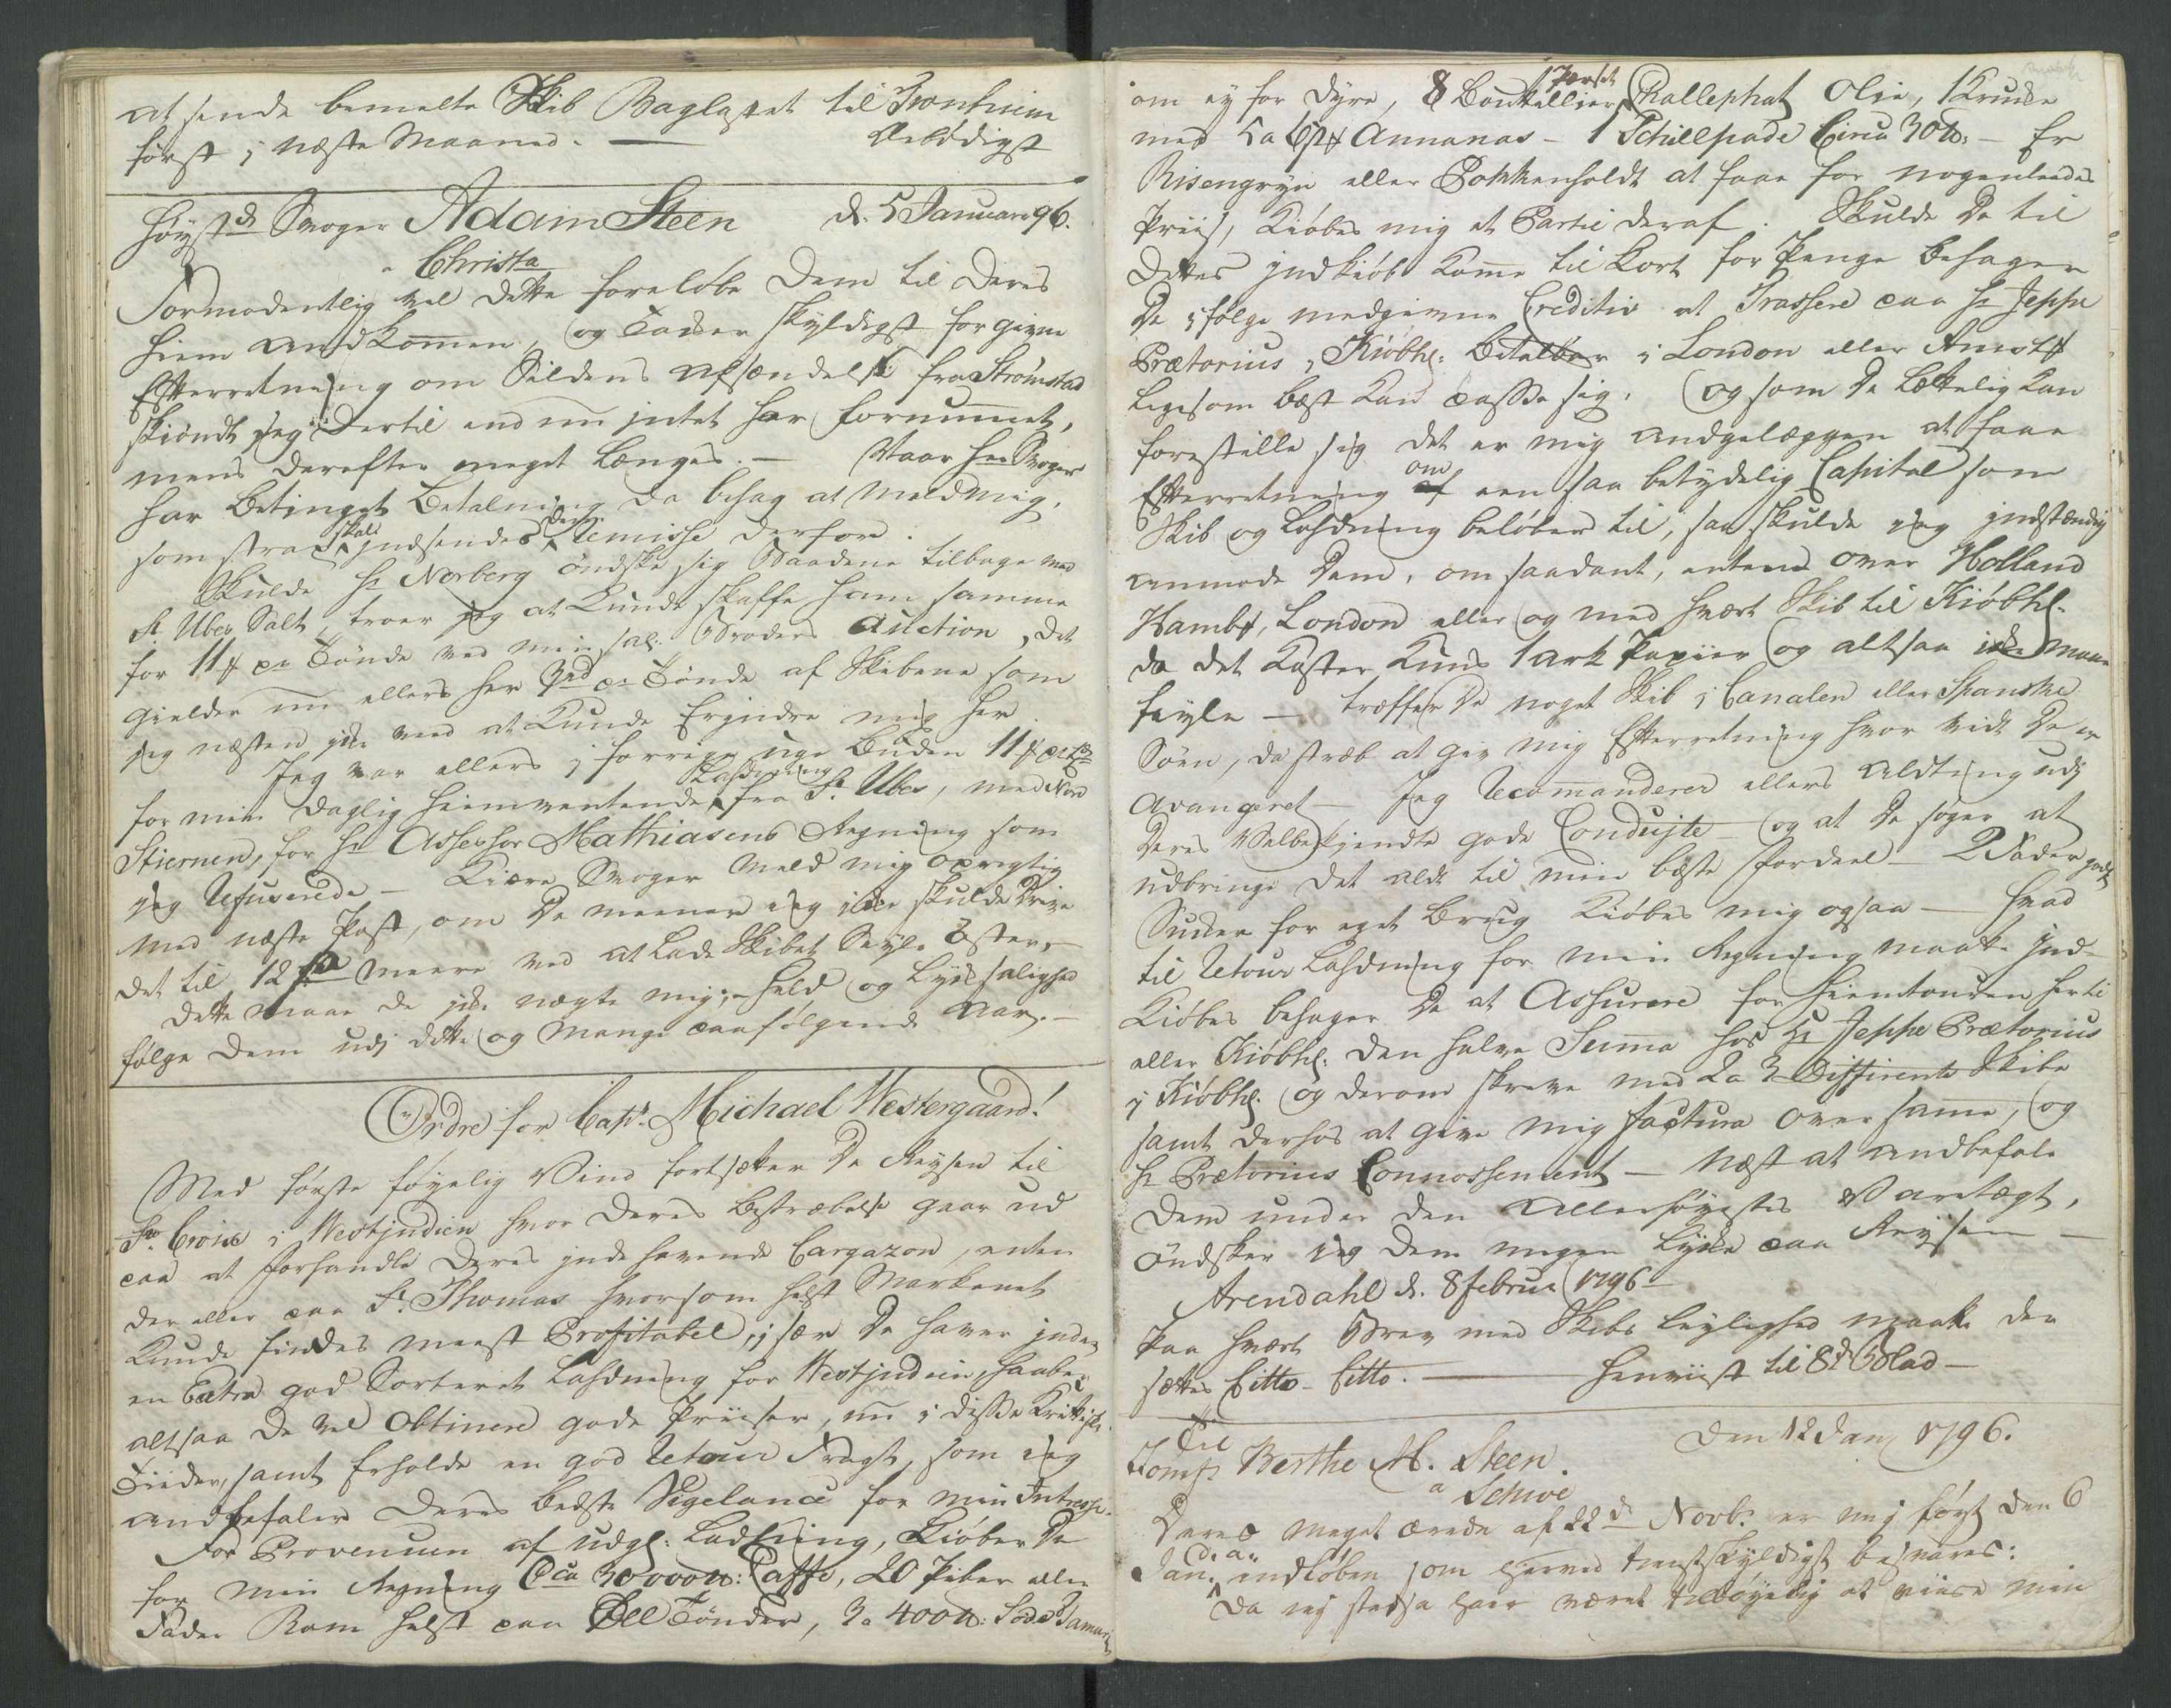 at sende bemelte Skib Baglastet til Tronhiem
først j næste Maaned. — Ærbødigst
Høyst Svoger Adam Steen d. 5 Januari 96.
a Christa
Formodentlig vel dette foreløbe Dem til Deres
Hiem andkommen, og Takker skyldigst for givne
Efterretning om Sildens afsændelse fra Strømstad
skiøndt jeg dertil end nu intet har fornummet,
mens derefter meget længes. — Naar Hr Svoger
har betinget Betalning da behag at meld mig,
som strax skal jndsendes den Remisse derfore.
Skulde Hr Norberg øndske sig Baadene tilbage med
St Ubes Salt, troer jeg at kunde skaffe ham samme
for 11 pr Tønde ved min sal: Broders Auction, det
gielder nu ellers her 3rd pr Tønde af Skibene som
jeg næsten jkke veed at kunde Erjndre mig her.
Jeg var ellers j forrige uge buden 11
for min daglig hiemventende Ladning fra St Ubes, med Nord
Stiernen, for Hr Assessor Mathiasens Regning som
jeg Refuserede — Kiære Svoger meld mig oprigtig
med næste Post, om De meener jeg jkke skulde drive
det til 12 meere ved at lade Skibet Seyle Øster, —
dette maae de jkke nægte mig; — Held og Lyksalighed
følge Dem udj dette og mange paafølgende Aar. —
Ordre for Capt. Michael Westergaard!
Med første føyelig Vind fortsætter De Reysen til
St. Croix i Westjndien hvor Deres bestræbelse gaar ud
paa at forhandle Deres jndehavende Cargazon, enten
der eller paa St. Thomas hvorsom helst Markenet
kunde findes meest Profitabel, j sær De haver jnde
en Extra god Sorteret Ladning for Westjndien, haaber
altsaa De vel obtinere gode Priiser, nu i disse Kritiske
Tiider, samt Erholde en god Retour Fragt, som jeg
andbefaler Deres bedste Vigelance for min Intresse.
For Provenuen af udgl: Ladning, kiøber De
for min Regning Cca 30000 ℔: Caffe, 20 Piber eller
Fader Rom helst paa Øll Tønder, 3 a 400 ℔: Søde Tamari
om ey for dyre, 8 Bouteillier Pallephat Olie, 1 Krukke
med 5 a 6 Annanas — 1 Schillpade Circa 30 ℔: — Er
Risengryn eller Pokkenholdt at faae for nogenleedes
Priis, kiøbes mig et Partie deraf. Skulde De til
Dettes jndkiøb komme til kort for Penge behager
De jfølge medgivne Creditiv at Trassere paa Hr Jeppe
Prætorius, Kiøbhl: betalbar i London eller Amst
ligesom best kan passe sig, og som De lættelig kan
forestille sig det er mig andgelæggen at faae
Efterretning om een saa betydelig Capital som
Skib og Ladning beløber til, saa skulde jeg jndstændig
anmode Dem, om saadant, entend over Holland
Hamb, London eller og med hvært Skib til Kiøbhl.
da det koster kuns 1 ark Papiir og altsaa jkke maae
feyle — træffer De noget Skib j Canalen eller Spanske
Søen, da stræb at giv mig Efterretning hvor vidt De er
avangeret — Jeg Recommanderer ellers aldting udj
Deres Velbekjendte gode Condujte og at De søger at
udbringe det aldt til min beste fordeel — 2 Fader godt
Sukker for eget Brug kiøbes mig ogsaa — hvad
til Retour Ladning for min Regning maatte jnd-
kiøbes behager De at Assurere for Hiemtouren hertil
eller Kiøbhl: den halve Summa hos Hr Jeppe Prætorius
i Kiøbhl. og derom skreve med 2 a 3 Differente Skibe
samt derhos at give mig factura over samme, og
Hr Prætorius Connossement — Næst at andbefale
Dem under den allerhøyestes Varetægt,
øndsker jeg Dem megen Lykke paa Reysen —
Arendahl d. 8 februa 1796 —
Paa hvært Brev med Skibs leylighed maatte den
sættes Citto – Citto. — Henviist til 8d Blad —
Til
Jomf. Berthe M. Steen. Den 12 Jan 1796.
a Schive
Deres meget ærede af 22d Novb. er mig først den 6
Jan. d. a. indløben som herved tienstskyldigst besvares:
da jeg stædse haar været tilbøyelig at viise min